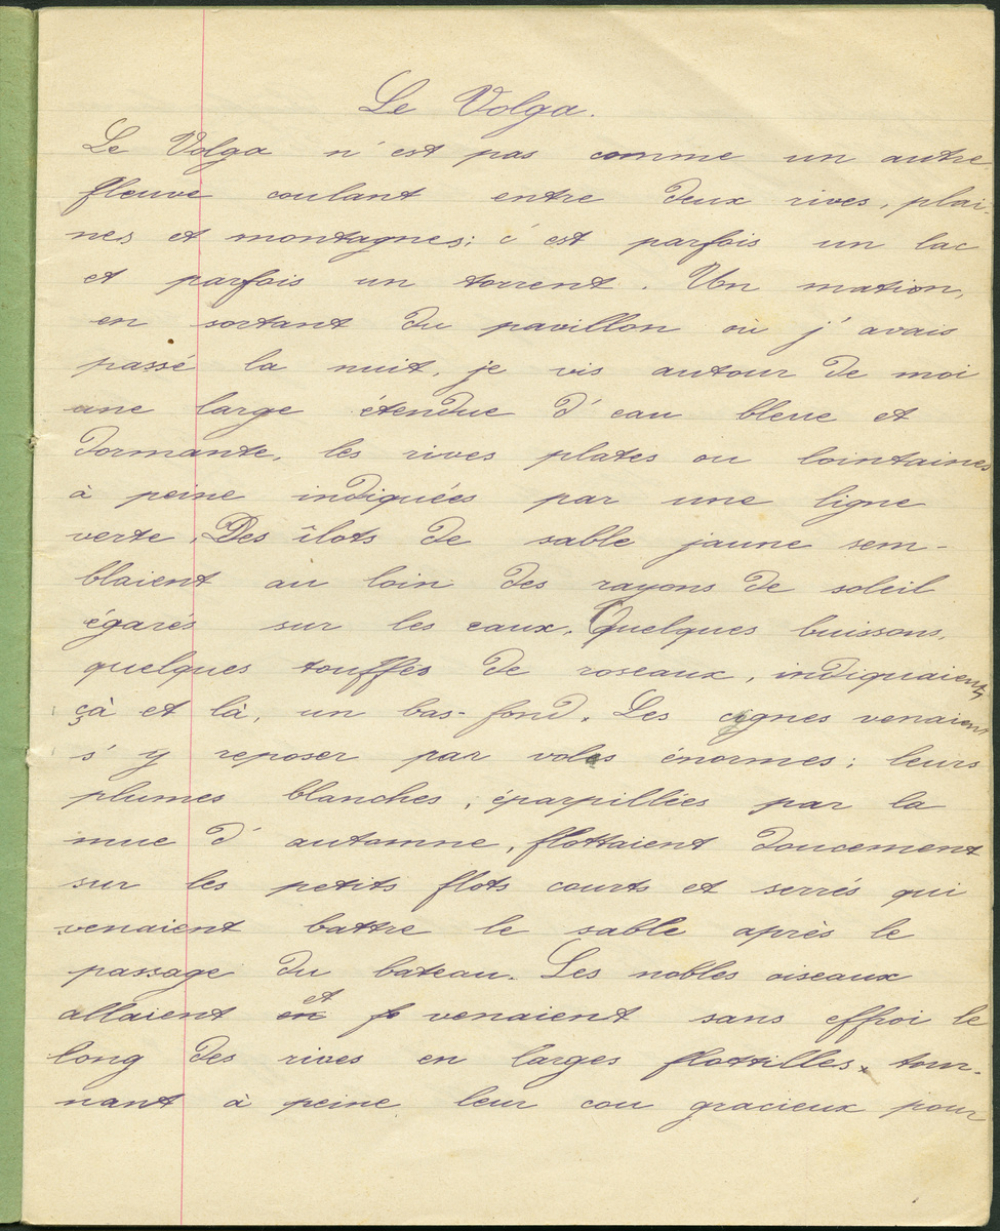 Le Volga.
Le Volga n'est pas comme un autre
fleuve coulant entre deux rives, plai-
nes et montagnes; c'est parfois un lac
et parfois un torrent. Un matin,
en sortant du pavillon où j'avais
passé la nuit, je vis autour de moi
une large étendue d'eau bleue et
dormante, les rives plates ou lointaines
à peine indiquées par une ligne
verte. Des îlots de sable jaune sem-
blaient au loin des rayons de soleil
égarés sur les eaux. Quelques buissons,
quelques touffes de roseaux, indiquaient
çà et là, un bas-fond. Les cygnes venaient
s'y reposer par voles énormes; leurs
plumes blanches, éparpillées par la
mue d'automne, flottaient doucement
sur les petits flots courts et serrés qui
venaient battre le sable après le
passage du bateau. Les nobles oiseaux
allaient et venaient sans effroi le
long des rives en larges flottilles, tour-
nant à peine leur cou gracieux pour